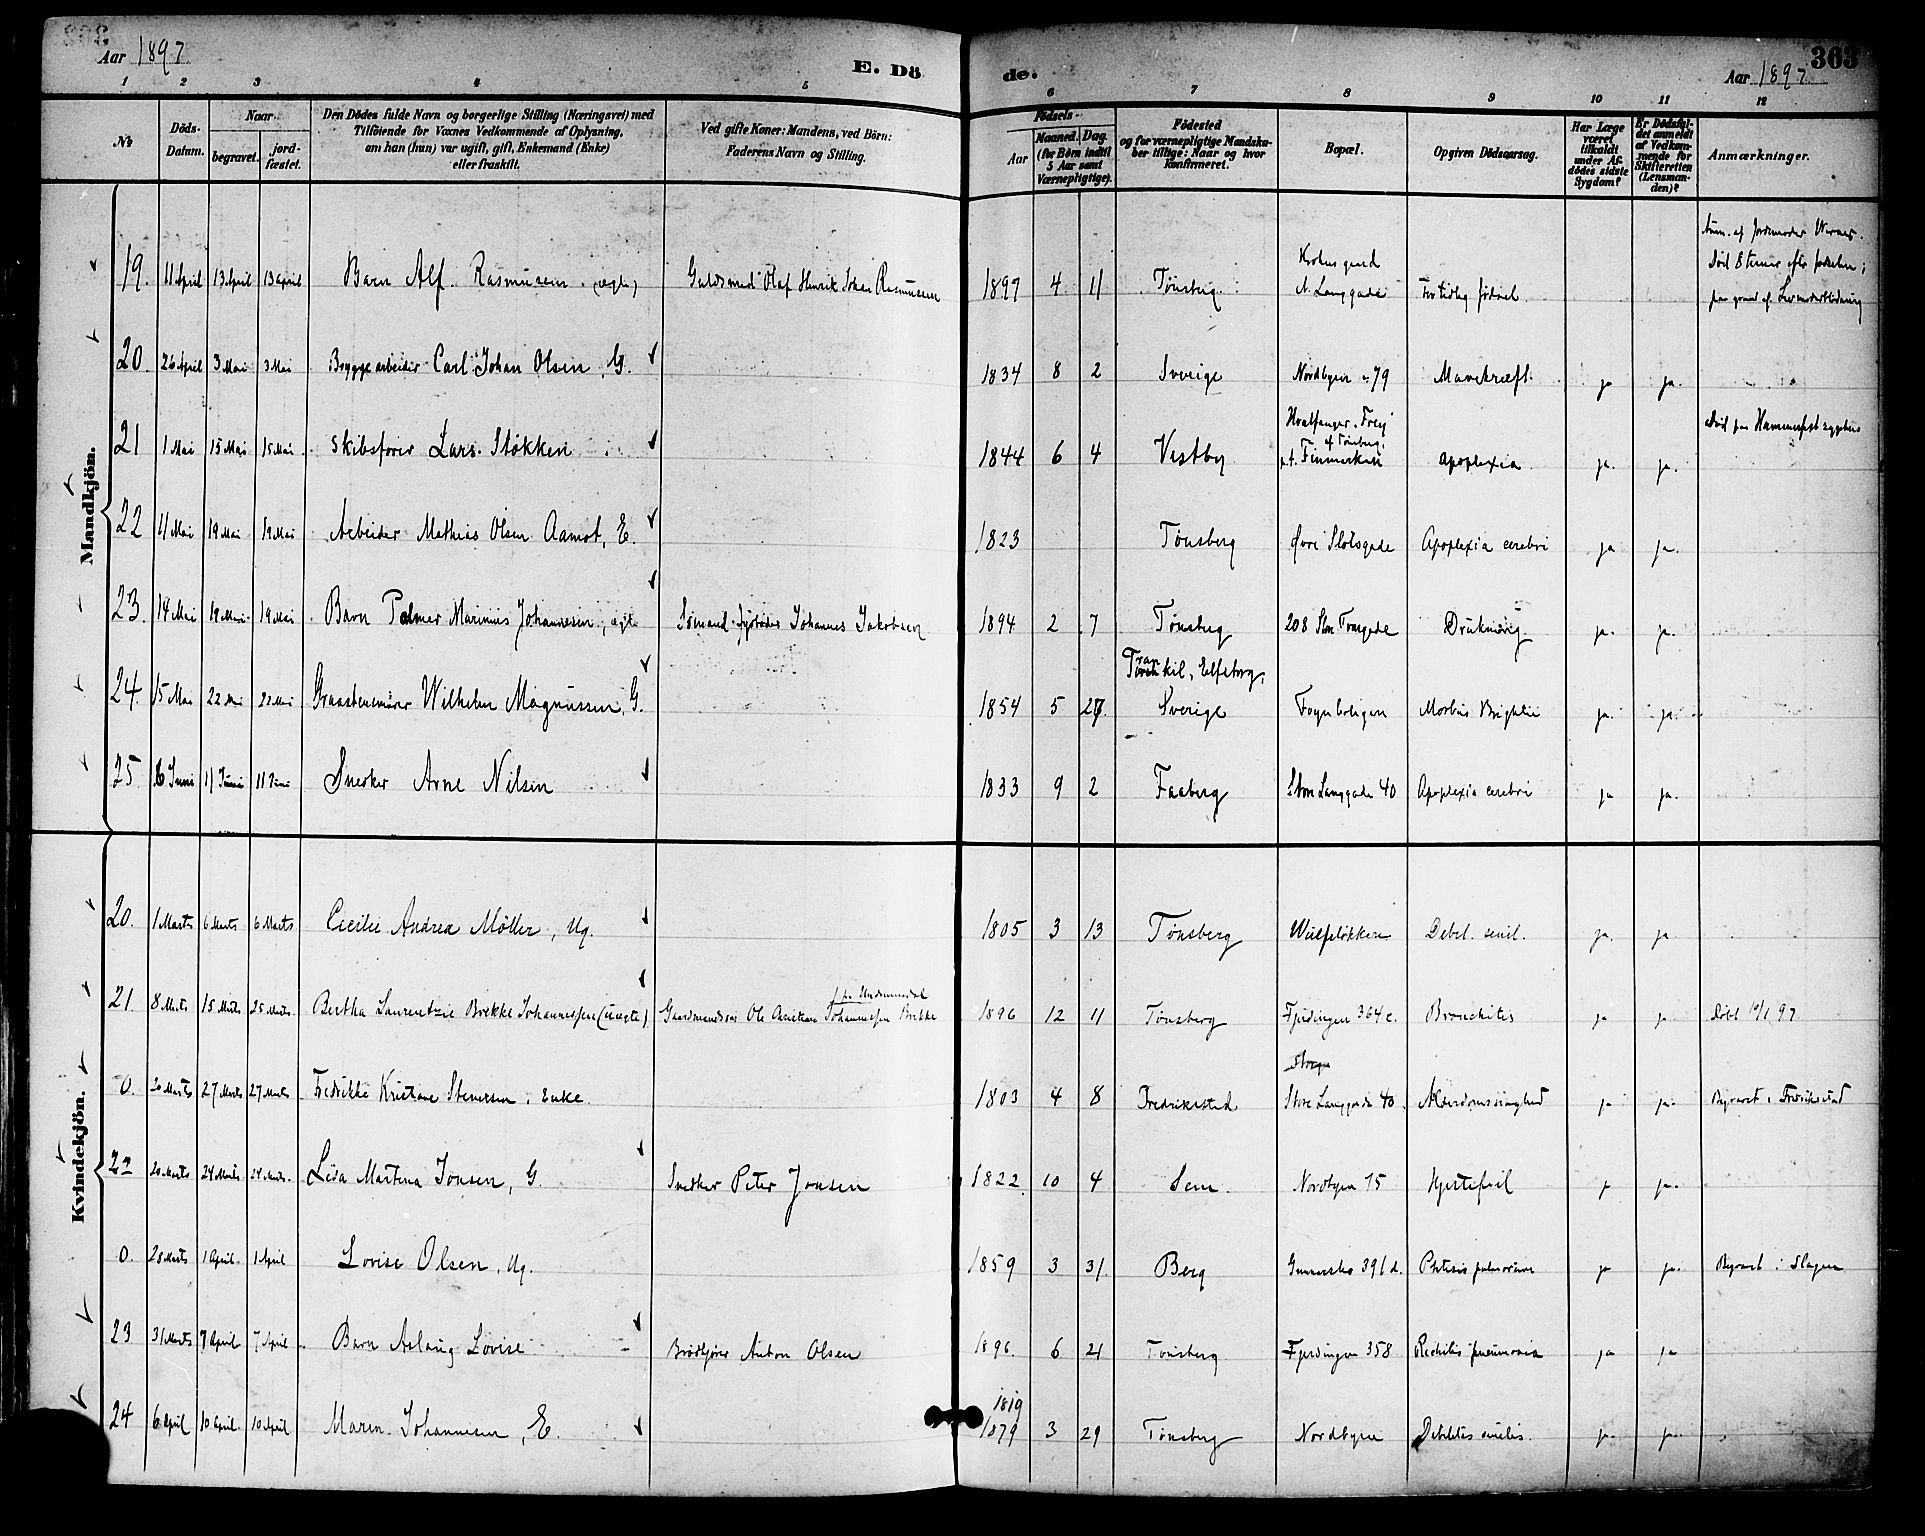 Aar 1897
E. Döde.
363
Aar 1897
1 2 3 4 5 6 7 8 9 10 11 12
No
Döds-Datum.
Naar
begravet.
jordfæstet.
Den Dödes fulde Navn og borgerlige Stilling (Næringsvei) med
Tilföiende for Voxnes Vedkommende af Oplysning,
om han (hun) var ugift, gift, Enkemand (Enke)
eller fraskilt.
Ved gifte Koner: Mandens, ved Börn:
Faderens Navn og Stilling.
Födsels-
Aar
Maaned. Dag.
(for Börn indtil
5 Aar samt
Værnepligtige).
Födested
og for værnepligtige Mandskaber
tillige: Naar og hvor
konfirmeret.
Bopæl.
Opgiven Dödsaarsag.
Har Læge
været
tilkaldt
under Afdödes
sidste
Sygdom?
Er Dödsfaldet
anmeldt
af Vedkommende
for
Skifteretten
(Lensmanden)?
Anmærkninger.
Mandkjön.
19. 11 April 13 April 13 April Barn Alf Rasmussen (ægte) Guldsmed Olaf Henrik Johan Rasmussen 1897 4 11 Tönsberg N. Langgade For tidlig födsel Anm. af Jordmoder Werner. Död 8 timer efter födselen;
20. 26 April 3 Mai 3 Mai Bryggearbeider Carl Johan Olsen, G. 1834 8 2 Sverige Nordbyen 79 Mavekræft. ja ja.
21 1 Mai 15 Mai 15 Mai Skibsförer Lars Stökken 1844 6 4 Vestby Hvalfanger Frey af Tönsberg, p.t. Finmarken apoplexia ja. ja. Död paa Hammerfest sygehus
22 11 Mai 19 Mai 19 Mai Arbeider Mathias Olsen Aamot, E. 1823 Tönsberg Övre Slotsgade Apoplexia cerebri ja ja.
23. 14 Mai 19 Mai 19 Mai Barn Palmer Marinius Johannesen, ægte Sömand Johannes Jakobsen 1894 2 7 Tönsberg 208 Store Drukning ja. ja.
24. 15 Mai 22 Mai 22 Mai Graastensmurer Wilhelm Magnussen, G. 1854 5 27. Trankil, Elfsborg, Sverige Föyenboligen Morbus Brightii ja. ja.
25 6 Juni 11 Juni 11 Juni Snedker Arne Nilsen 1833 9 2 Faaberg Store Langgade 40 Apoplexia cerebri ja ja.
Kvindekjön.
20. 1 Marts 6 Marts 6 Marts Cecilie Andrea Møller, Ug. 1805 3 13 Tönsberg Wulfsløkken Debel. senil. ja. ja
21 8 Marts 15 Marts 25 Marts Bertha Laurentzie Brekke Johannessen (uægte) Gaardmandssön Ole Johannessen Brekke 1896 12 11 Tönsberg Fjerdingen 364 c. Bronchitis ja ja Döbt 10/1 97
0. 20 Marts 27 Marts 27 Marts Fredrikke Kristiane Stenersen, Enke 1803 4 8 Fredrikstad Store Langgade 40. Alderdomssvaghed ja ja. Begravet i Fredrikstad
22 20 Marts 24 Marts 24 Marts. Lisa Martina Jonsen, G. Snedker Peter Jonsen 1822. 10 4 Sem. Nordbyen 75 Hjertefeil ja.
0. 28 Marts 1 April. 1 April Lovise Olsen, Ug. 1859 3 31. Berg 391 d. Phtisis pulmonum ja ja. Begravet i Slagen
23 31 Marts 7 April 7 April Barn Aslaug Lovise Brödkjörer Anton Olsen 1896. 6 21 Tönsberg Fjerdingen 358 Rachitis pneumonia ja ja
24 6 April 10 April. 10 April Maren Johannesen, E. 1819 1879 3 29 Tönsberg Nordbyen Debilitas senilis. ja. ja